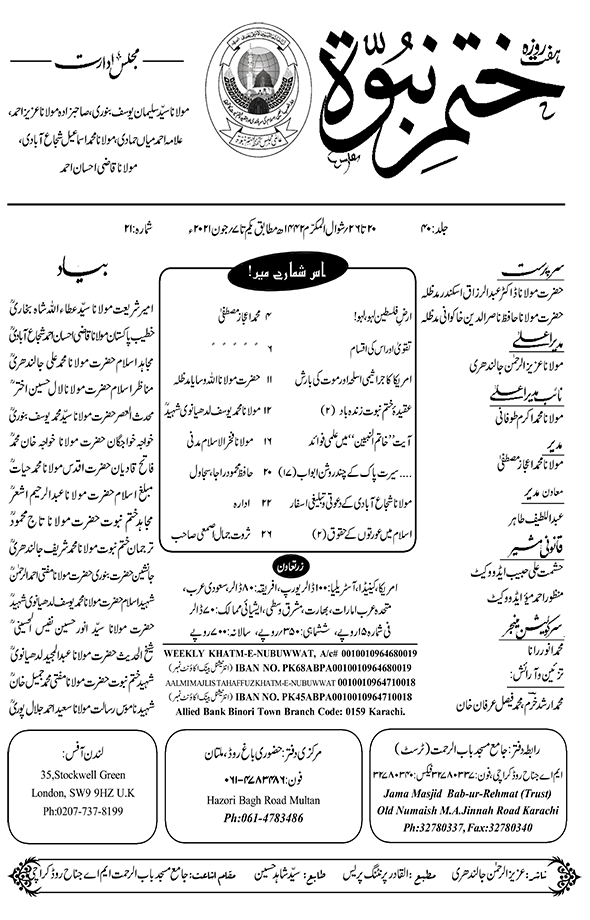 ہفت روزہ
ختم نبوۃ
مجلس ادارت
مولانا سید سلیمان یوسف بنوری، صاحبزادہ مولانا عزیز احمد،
علامہ احمد میاں حمادی، مولانا محمد اسماعیل شجاع آبادی،
مولانا قاضی احسان احمد
جلد: ۴۰
۲۰ تا ۲۶ / شوال المکرم ۱۴۴۲ھ مطابق یکم تا ۷ / جون ۲۰۲۱ء
شمارہ: ۲۱
سرپرست
حضرت مولانا ڈاکٹر عبدالرزاق اسکندر مدظلہ
حضرت مولانا حافظ ناصرالدین خاکوانی مدظلہ
مدیر اعلیٰ
مولانا عزیز الرحمٰن جالندھری
نائب مدیر اعلیٰ
مولانا محمد اکرم طوفانی
مدیر
مولانا محمد اعجاز مصطفیٰ
معاون مدیر
عبداللطیف طاہر
قانونی مشیر
حشمت علی حبیب ایڈووکیٹ
منظور احمد میؤ ایڈووکیٹ
سرکولیشن منیجر
محمد انور رانا
تزئین و آرائش:
محمد ارشد خرم، محمد فیصل عرفان خان
اس شمارے میں!
ارضِ فلسطین لہو، لہو! ۴ محمد اعجاز مصطفیٰ
تقویٰ اور اس کی اقسام ۶ " " " " "
امریکا کا جراثیمی اسلحہ اور موت کی بارش ۱۱ حضرت مولانا اللہ وسایا مدظلہ
عقیدۂ ختم نبوت زندہ باد (۲) ۱۲ مولانا محمد یوسف لدھیانوی شہیدؒ
آیت ”خاتم النبیین“ میں علمی فوائد ۱۶ مولانا فخر الاسلام مدنی
.... سیرت پاک کے چند روشن ابواب (۱۷) ۲۰ حافظ محمود راجا، سجاول
مولانا شجاع آبادی کے دعوتی و تبلیغی اسفار ۲۲ ادارہ
اسلام میں عورتوں کے حقوق (۲) ۲۶ ثروت جمال اصمعی صاحب
زر تعاون
امریکا، کینیڈا، آسٹریلیا: ۱۰۰ ڈالر یورپ، افریقہ: ۸۰ ڈالر، سعودی عرب،
متحدہ عرب امارات، بھارت، مشرق وسطیٰ، ایشیائی ممالک: ۷۰ ڈالر
فی شمارہ ۱۵ روپے، ششماہی: ۳۵۰ روپے، سالانہ: ۷۰۰ روپے
WEEKLY KHATM-E-NUBUWWAT, A/c# 0010010964680019
IBAN NO. PK68ABPA0010010964680019 (انٹرنیشنل بینک اکاؤنٹ نمبر)
AALMIMAJLISTAHAFFUZKHATM-E-NUBUWWAT 0010010964710018
IBAN NO. PK45ABPA0010010964710018 (انٹرنیشنل بینک اکاؤنٹ نمبر)
Allied Bank Binori Town Branch Code: 0159 Karachi.
بیاد
امیر شریعت مولانا سید عطاء اللہ شاہ بخاریؒ
خطیب پاکستان مولانا قاضی احسان احمد شجاع آبادیؒ
مجاہد اسلام حضرت مولانا محمد علی جالندھریؒ
مناظر اسلام حضرت مولانا لال حسین اخترؒ
محدث العصر حضرت مولانا سید محمد یوسف بنوریؒ
خواجہ خواجگان حضرت مولانا خواجہ خان محمدؒ
فاتح قادیان حضرت اقدس مولانا محمد حیاتؒ
مبلغ اسلام حضرت مولانا عبدالرحیم اشعرؒ
مجاہد ختم نبوت حضرت مولانا تاج محمودؒ
ترجمان ختم نبوت حضرت مولانا محمد شریف جالندھریؒ
جانشین حضرت بنوری حضرت مولانا مفتی احمد الرحمٰنؒ
شہید اسلام حضرت مولانا محمد یوسف لدھیانوی شہیدؒ
حضرت مولانا سید انور حسین نفیس الحسینیؒ
شیخ الحدیث حضرت مولانا عبدالمجید لدھیانویؒ
شہید ختم نبوت حضرت مولانا مفتی محمد جمیل خانؒ
شہید ناموس رسالت مولانا سعید احمد جلال پوریؒ
رابطہ دفتر: جامع مسجد باب الرحمت (ٹرسٹ)
ایم اے جناح روڈ کراچی، فون: ۳۲۷۸۰۳۳۷ فیکس: ۳۲۷۸۰۳۴۰
Jama Masjid Bab-ur-Rehmat (Trust)
Old Numaish M.A.Jinnah Road Karachi
Ph:32780337, Fax:32780340
مرکزی دفتر: حضوری باغ روڈ، ملتان
فون: ۰۶۱-۴۷۸۳۴۸۶
Hazori Bagh Road Multan
Ph:061-4783486
لندن آفس:
35,Stockwell Green
London, SW9 9HZ U.K
Ph:0207-737-8199
ناشر: عزیز الرحمٰن جالندھری مطبع: القادر پرنٹنگ پریس طابع: سید شاہد حسین مقام اشاعت: جامع مسجد باب الرحمت ایم اے جناح روڈ کراچی